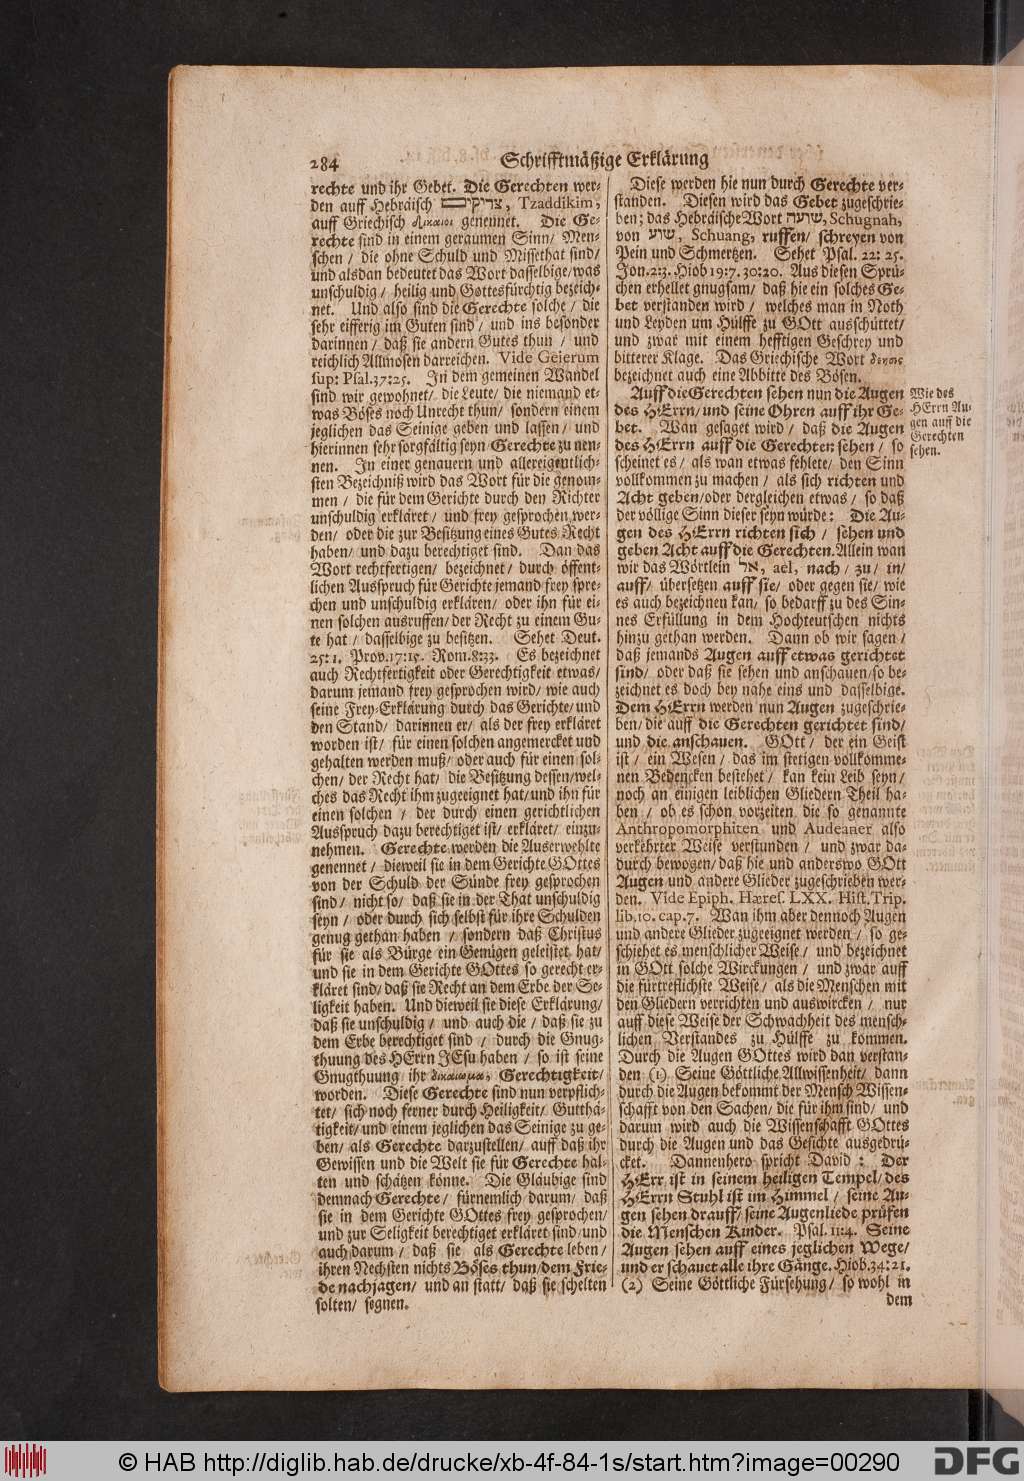 284 Schrifftmäßige Erklärung
rechte und ihr Gebet. Die Gerechten wer-
den auff Hebräisch צדיקים, Tzaddikim,
auff Griechisch Δίκαιοι genennet. Die Ge-
rechte sind in einem geraumen Sinn/ Men-
schen / die ohne Schuld und Missethat sind/
und alsdan bedeutet das Wort dasselbige/was
unschuldig / heilig und Gottesfürchtig bezeich-
net. Und also sind die Gerechte solche / die
sehr eifferig im Guten sind / und ins besonder
darinnen / daß sie andern Gutes thun / und
reichlich Allmosen darreichen. Vide Gejerum
sup: Psal.37:25. In dem gemeinen Wandel
sind wir gewohnet/ die Leute/ die niemand et-
was Böses noch Unrecht thun/ sondern einem
jeglichen das Seinige geben und lassen / und
hierinnen sehr sorgfältig seyn Gerechte zu nen-
nen. In einer genauern und allereigentlich-
sten Bezeichniß wird das Wort für die genom-
men / die für dem Gerichte durch den Richter
unschuldig erkläret / und frey gesprochen wer-
den/ oder die zur Besitzung eines Gutes Recht
haben/ und dazu berechtiget sind. Dan das
Wort rechtfertigen/ bezeichnet / durch öffent-
lichen Ausspruch für Gerichte jemand frey spre-
chen und unschuldig erklären/ oder ihn für ei-
nen solchen ausruffen/ der Recht zu einem Gu-
te hat / dasselbige zu besitzen. Sehet Deut.
25:1. Prov.17:15. Rom.8:33. Es bezeichnet
auch Rechtfertigkeit oder Gerechtigkeit etwas/
darum jemand frey gesprochen wird/ wie auch
seine Frey-Erklärung durch das Gerichte/ und
den Stand/ darinnen er/ als der frey erkläret
worden ist/ für einen solchen angemercket und
gehalten werden muß/ oder auch für einen sol-
chen/ der Recht hat/ die Besitzung dessen/wel-
ches das Recht ihm zugeeignet hat/und ihn für
einen solchen / der durch einen gerichtlichen
Ausspruch dazu berechtiget ist/ erkläret/ einzu-
nehmen. Gerechte werden die Auserwehlte
genennet / dieweil sie in dem Gerichte GOttes
von der Schuld der Sünde frey gesprochen
sind/ nicht so/ daß sie in der That unschuldig
seyn / oder durch sich selbst für ihre Schulden
genug gethan haben / sondern daß Christus
für sie als Bürge ein Genügen geleistet hat/
und sie in dem Gerichte GOttes so gerecht er-
kläret sind/ daß sie Recht an dem Erbe der Se-
ligkeit haben. Und dieweil sie diese Erklärung/
daß sie unschuldig / und auch die / daß sie zu
dem Erbe berechtiget sind / durch die Gnug-
thuung des HErrn JEsu haben / so ist seine
Gnugthuung ihr δικαίωμα, Gerechtigkeit/
worden. Diese Gerechte sind nun verpflich-
tet/ sich noch ferner durch Heiligkeit/ Gutthä-
tigkeit/ und einem jeglichen das Seinige zu ge-
ben/ als Gerechte darzustellen/ auff daß ihr
Gewissen und die Welt sie für Gerechte hal-
ten und schätzen könne. Die Gläubige sind
demnach Gerechte / fürnemlich darum/ daß
sie in dem Gerichte GOttes frey gesprochen/
und zur Seligkeit berechtiget erkläret sind/und
auch darum / daß sie als Gerechte leben /
ihren Nechsten nichts Böses thun/dem Frie-
de nachjagen/ und an statt/ daß sie schelten
solten/ segnen.
Diese werden hie nun durch Gerechte ver-
standen. Diesen wird das Gebet zugeschrie-
ben; das Hebräische Wort שועה, Schugnah,
von שוע, Schuang, ruffen/ schreyen von
Pein und Schmertzen. Sehet Psal. 22: 25.
Jon.2:3. Hiob 19:7. 30:20. Aus diesen Sprü-
chen erhellet gnugsam/ daß hie ein solches Ge-
bet verstanden wird / welches man in Noth
und Leyden um Hülffe zu GOtt ausschüttet/
und zwar mit einem hefftigen Geschrey und
bitterer Klage. Das Griechische Wort δέησις
bezeichnet auch eine Abbitte des Bösen.
Auff die Gerechten sehen nun die Augen
des HErrn/und seine Ohren auff ihr Ge-
bet. Wan gesaget wird / daß die Augen
des HErrn auff die Gerechten sehen / so
scheinet es / als wan etwas fehlete/ den Sinn
vollkommen zu machen / als sich richten und
Acht geben/oder dergleichen etwas / so daß
der völlige Sinn dieser seyn würde: Die Au-
gen des HErrn richten sich / sehen und
geben Acht auff die Gerechten. Allein wan
wir das Wörtlein אל, aël, nach / zu / in/
auff/ übersetzen auff sie/ oder gegen sie/ wie
es auch bezeichnen kan/ so bedarff zu des Sin-
nes Erfüllung in dem Hochteutschen nichts
hinzu gethan werden. Dann ob wir sagen /
daß jemands Augen auff etwas gerichtet
sind/ oder daß sie sehen und anschauen/so be-
zeichnet es doch bey nahe eins und dasselbige.
Dem HErrn werden nun Augen zugeschrie-
ben/ die auff die Gerechten gerichtet sind/
und die anschauen. GOtt / der ein Geist
ist / ein Wesen / das im stetigen vollkomme-
nen Bedencken bestehet / kan kein Leib seyn/
noch an einigen leiblichen Gliedern Theil ha-
ben / ob es schon vorzeiten die so genannte
Anthropomorphiten und Audeaner also
verkehrter Weise verstunden / und zwar da-
durch bewogen/ daß hie und anderswo GOtt
Augen und andere Glieder zugeschrieben wer-
den. Vide Epiph. Hæres. LXX. Hist. Trip.
lib.10. cap.7. Wan ihm aber dennoch Augen
und andere Glieder zugeeignet werden / so ge-
schiehet es menschlicher Weise / und bezeichnet
in GOtt solche Wirckungen / und zwar auff
die fürtreflichste Weise / als die Menschen mit
den Gliedern verrichten und auswircken / nur
auff diese Weise der Schwachheit des mensch-
lichen Verstandes zu Hülffe zu kommen.
Durch die Augen GOttes wird dan verstan-
den (1) Seine Göttliche Allwissenheit/ dann
durch die Augen bekommt der Mensch Wissen-
schafft von den Sachen/ die für ihm sind/ und
darum wird auch die Wissenschafft GOttes
durch die Augen und das Gesichte ausgedrü-
cket. Dannenhero spricht David : Der
HErr ist in seinem heiligen Tempel/ des
HErrn Stuhl ist im Himmel / seine Au-
gen sehen drauff/ seine Augenliede prüfen
die Menschen Kinder. Psal. 11:4. Seine
Augen sehen auff eines jeglichen Wege/
und er schauet alle ihre Gänge. Hiob.34:21.
(2) Seine Göttliche Fürsehung/ so wohl in
dem
Wie des
HErrn Au-
gen auff die
Gerechten
sehen.
© HAB http://diglib.hab.de/drucke/xb-4f-84-1s/start.htm?image=00290
DFG